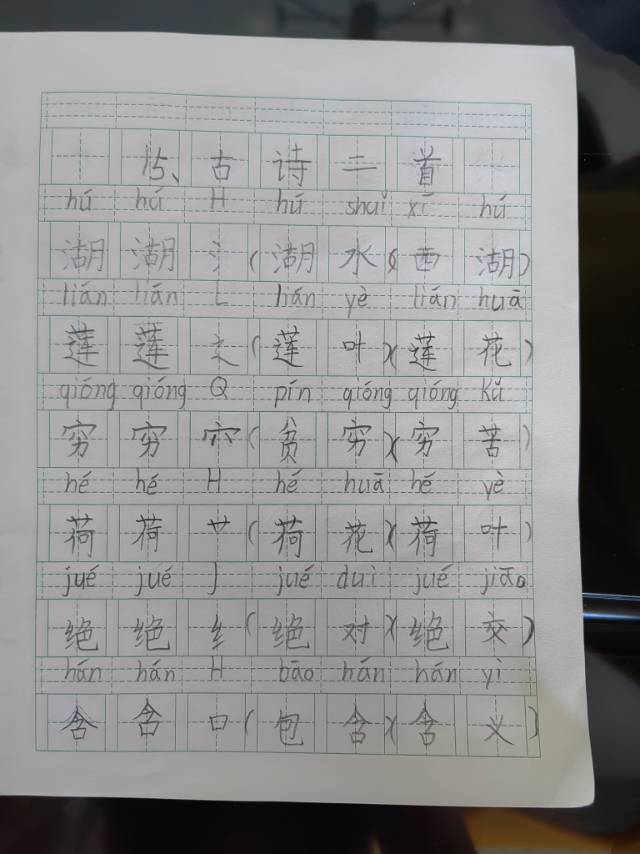 15、古诗二首
hú hú H hú shuǐ xī hú
湖 湖 氵(湖 水)(西 湖)
lián lián L lián yè lián huā
莲 莲 辶(莲 叶)(莲 花)
qióng qióng Q pín qióng qióng kǔ
穷 穷 穴(贫 穷)(穷 苦)
hé hé H hé huā hé yè
荷 荷 艹(荷 花)(荷 叶)
jué jué J jué duì jué jiāo
绝 绝 纟(绝 对)(绝 交)
hán hán H bāo hán hán yì
含 含 口(包 含)(含 义)